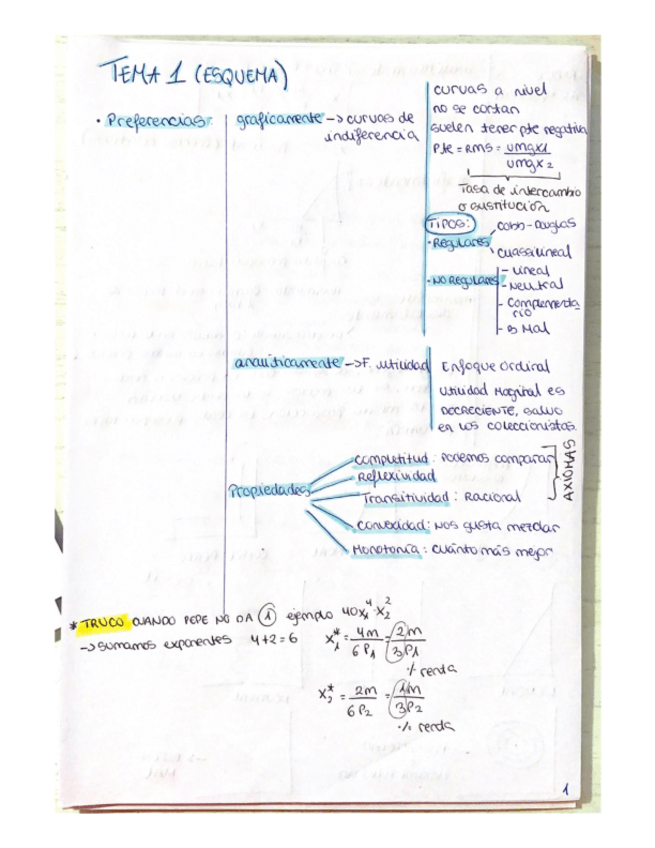 TEMA 1 (ESQUEMA)
• Preferencias
graficamente -> curvas de
indiferencia
curvas a nivel
no se cortan
suelen tener pte negativa
Pte = RMS = UMgX1
UMgX2
Tasa de intercambio
o sustitución
TIPOS:
- Regulares
Cobb-Douglas
cuasilineal
- NO Regulares
- lineal
- Neutral
- Complementa
rio
- B Mal
analíticamente -> F. utilidad
Enfoque ordinal
Utilidad Marginal es
DECRECIENTE, salvo
en los coleccionistas
Propiedades
completitud: Podemos comparar
Reflexividad
Transitividad: Racional
AXIOMAS
Convexidad: Nos gusta mezclar
Monotonía: cuánto más mejor
* TRUCO CUANDO PEPE NO DA 1 ejemplo 40x₁⁴·x₂²
-> sumamos exponentes 4+2=6
x₁* = 4m/6P₁ = 2m/3P₁
% renta
x₂* = 2m/6P₂ = 1m/3P₂
% renta
1